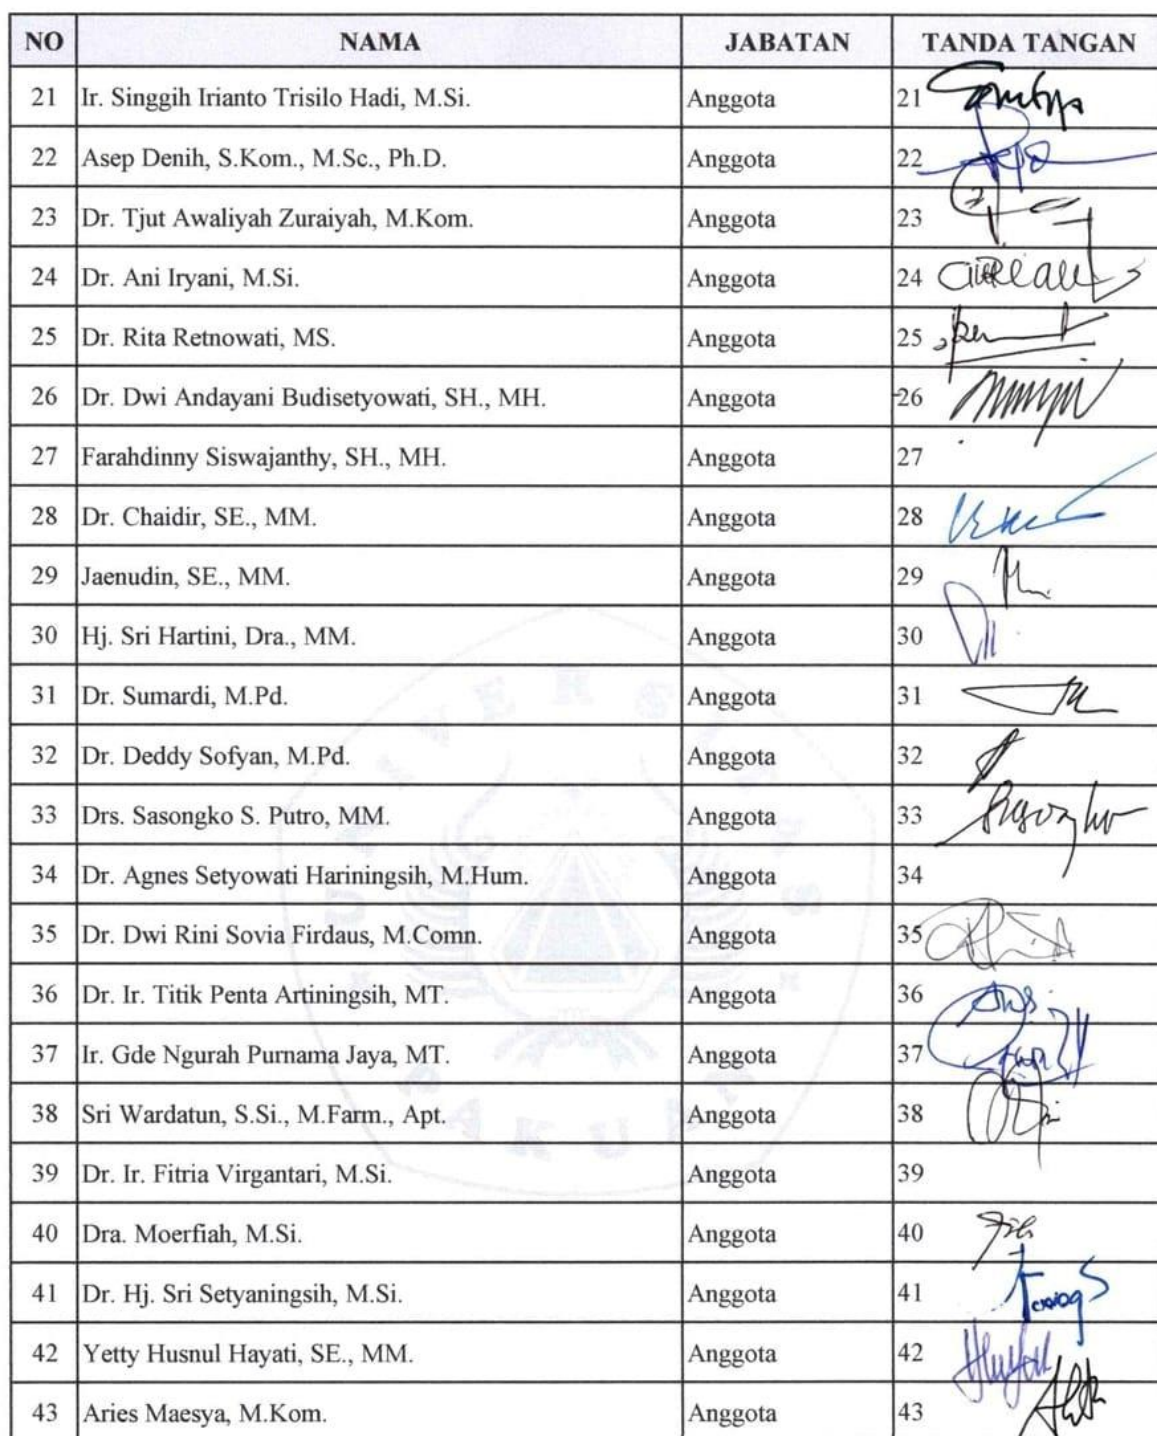 NO NAMA JABATAN TANDA TANGAN
21 Ir. Singgih Irianto Trisilo Hadi, M.Si. Anggota 21
22 Asep Denih, S.Kom., M.Sc., Ph.D. Anggota 22
23 Dr. Tjut Awaliyah Zuraiyah, M.Kom. Anggota 23
24 Dr. Ani Iryani, M.Si. Anggota 24
25 Dr. Rita Retnowati, MS. Anggota 25
26 Dr. Dwi Andayani Budisetyowati, SH., MH. Anggota 26
27 Farahdinny Siswajanthy, SH., MH. Anggota 27
28 Dr. Chaidir, SE., MM. Anggota 28
29 Jaenudin, SE., MM. Anggota 29
30 Hj. Sri Hartini, Dra., MM. Anggota 30
31 Dr. Sumardi, M.Pd. Anggota 31
32 Dr. Deddy Sofyan, M.Pd. Anggota 32
33 Drs. Sasongko S. Putro, MM. Anggota 33
34 Dr. Agnes Setyowati Hariningsih, M.Hum. Anggota 34
35 Dr. Dwi Rini Sovia Firdaus, M.Comn. Anggota 35
36 Dr. Ir. Titik Penta Artiningsih, MT. Anggota 36
37 Ir. Gde Ngurah Purnama Jaya, MT. Anggota 37
38 Sri Wardatun, S.Si., M.Farm., Apt. Anggota 38
39 Dr. Ir. Fitria Virgantari, M.Si. Anggota 39
40 Dra. Moerfiah, M.Si. Anggota 40
41 Dr. Hj. Sri Setyaningsih, M.Si. Anggota 41
42 Yetty Husnul Hayati, SE., MM. Anggota 42
43 Aries Maesya, M.Kom. Anggota 43
UNIVERSITAS
PAKUAN